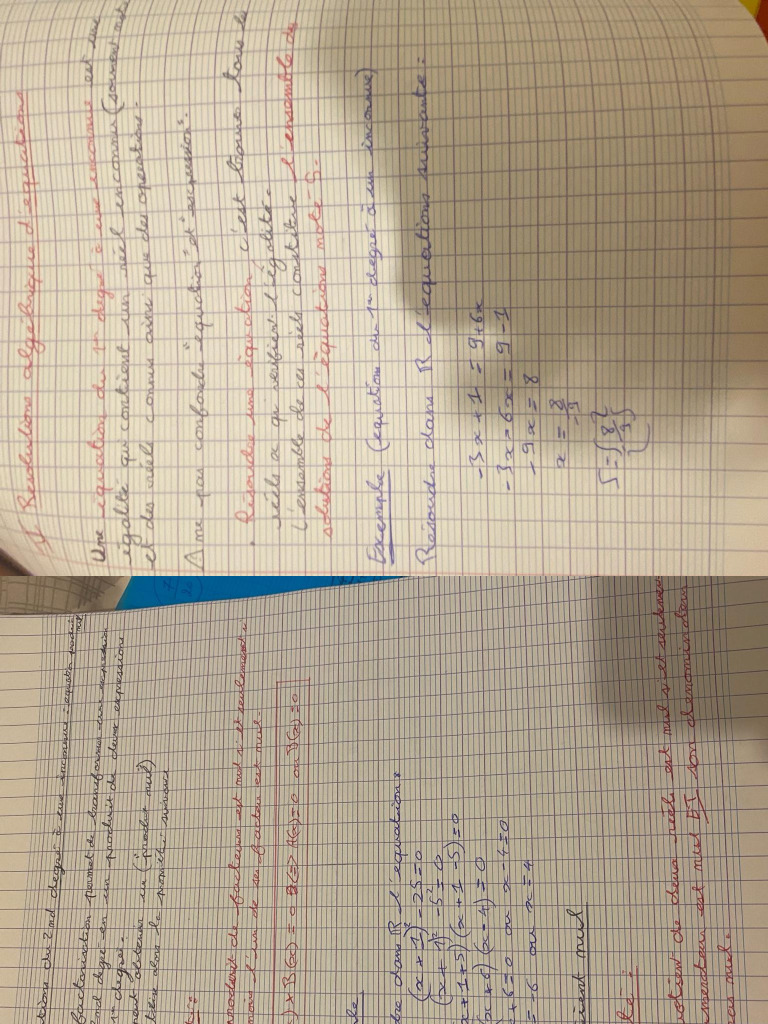 I/ Resolutions algébrique d'equations
Une équation du 1er degré à une inconnue est une
égalité qui contient un réel inconnu (souvent
et des réels connus ainsi que des opérations.
Δ ne pas confondre "equation" et "expression".
• Résoudre une équation, c'est trouver tous les
réels x qui vérifient l'égalité.
L'ensemble de ces réels constitue l'ensemble de
solutions de l'équations noté S.
Exemple (equations du 1er degré à un inconnue)
Résoudre dans R l'équations suivante :
-3x + 1 = 9+6x
-3x 6x = 9 - 1
-9x = 8
x = 8/-9
S = {8/-9}
tion du 2nd degré à une inconnue : équation produit
factorisation permet de transformer une expression
2nd degré en un produit de deux expressions
degré.
obtenir un (produit nul)
alors la propriété suivante
produit de facteurs est nul si et seulement si
moins l'un de ses facteur est nul.
) x B(x) = 0 <=> A(x) = 0 ou B(x) = 0
dre dans R l'équation :
(x + 1)² - 25 = 0
(x + 1)² - 5² = 0
x + 1 + 5) (x + 1 - 5) = 0
(x + 6) (x - 4) = 0
+ 6 = 0 ou x - 4 = 0
= -6 ou x = 4
tient nul
té :
uotient de deux réels est nul si et seulement
mérateur est nul ET son dénominateur
pas nul.